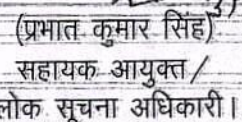 (प्रभात कुमार सिंह)
सहायक आयुक्त /
लोक सूचना अधिकारी।